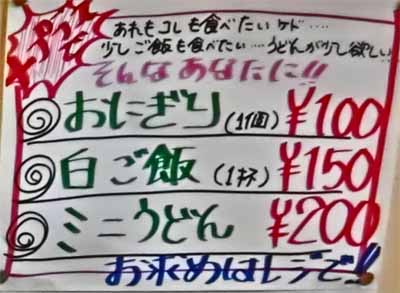 あれもコレも食べたいケド…
少しご飯も食べたい…うどんが少し欲しい
そんなあなたに!!
おにぎり(1個) ¥100
白ご飯(1杯) ¥150
ミニうどん ¥200
お求めはレジで!!